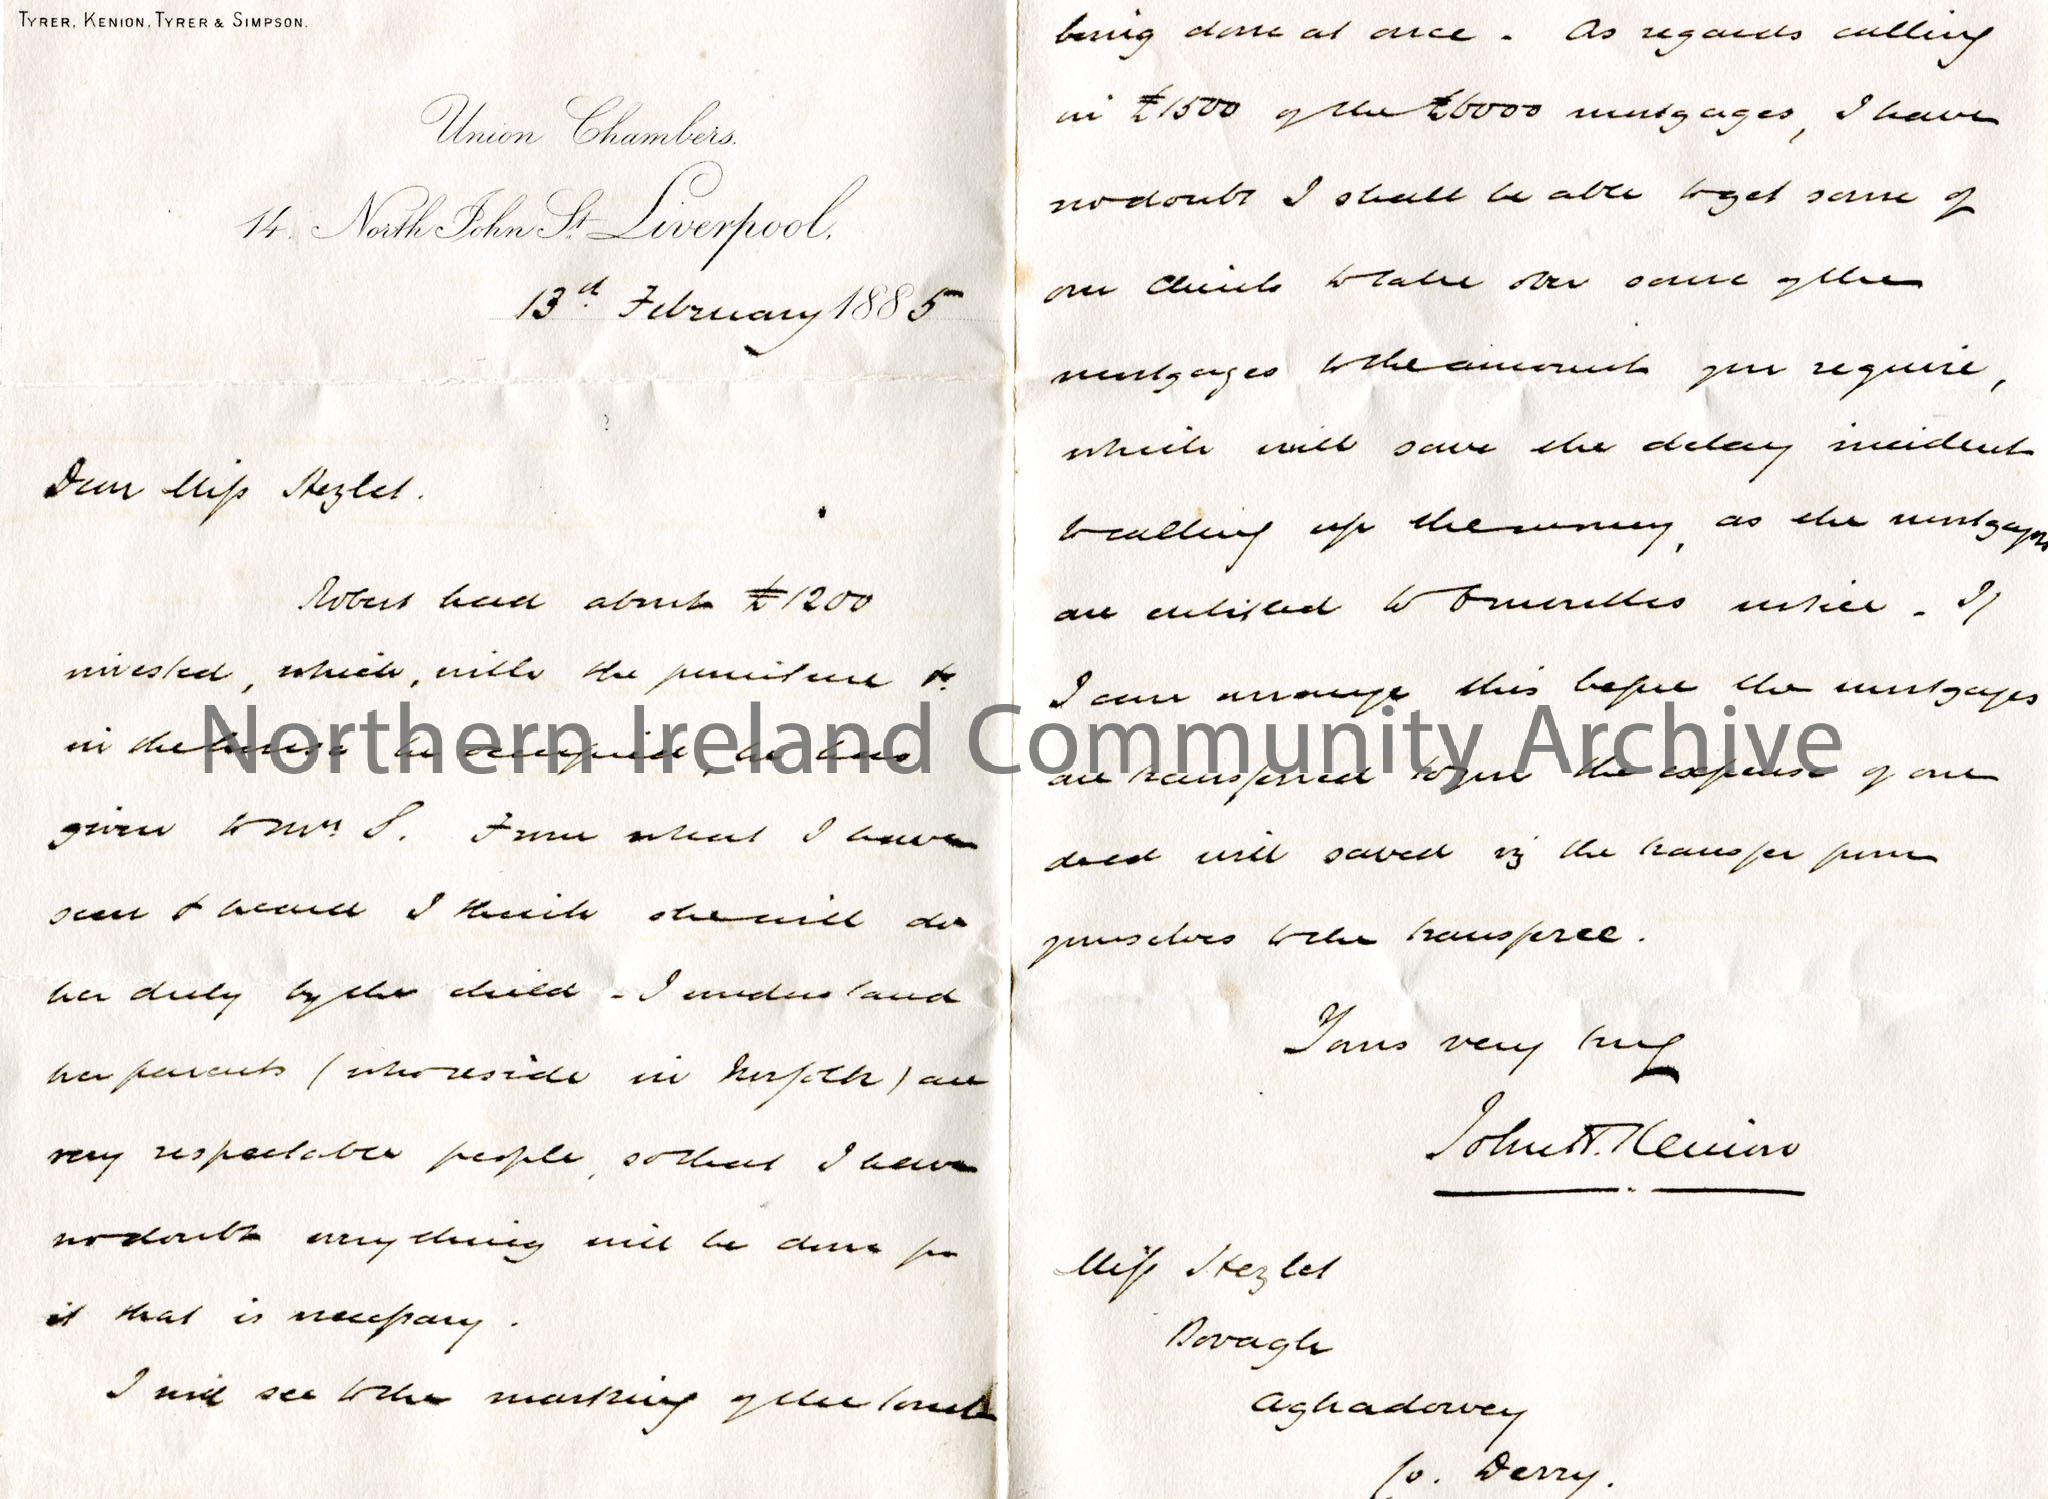 TYRER, KENION, TYRER & SIMPSON.
Union Chambers.
14. North John St Liverpool.
13th February 1885
Dear Miss Hezlet.
Robert had about £1200
invested, which, with the furniture &c.
in the house he occupied, he has
given to Mrs S. From what I have
seen & heard I think she will do
her duty by the child - I understand
her parents (who reside in Norfolk) are
very respectable people, so that I have
no doubt anything will be done for
it that is necessary.
I will see to the marking of the tomb
being done at once - As regards calling
in £1500 of the £6000 mortgages, I have
no doubt I shall be able to get some of
our clients to take over some of the
mortgages to the amount you require,
which will save the delay incident
to calling up the money, as the mortgagors
are entitled to 6 months notice - If
I can arrange this before the mortgages
are transferred to you the expense of one
deed will saved viz the transfer from
yourselves to the transferee.
Yours very truly
John H. Kenion
Miss Hezlet
Bovagh
Aghadowey
Co. Derry.
Northern Ireland Community Archive